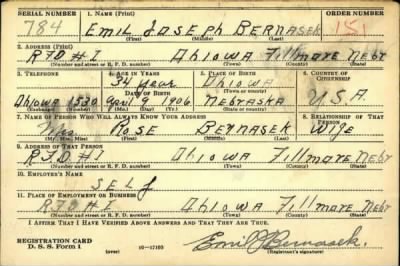 SERIAL NUMBER 1. NAME (Print) ORDER NUMBER
784 EMIL JOSEPH BERNASEK 151
(First) (Middle) (Last)
2. ADDRESS (Print)
RFD #1 Ohiowa Fillmore Nebr
(Number and street or R. F. D. number) (Town) (County) (State)
3. TELEPHONE 4. AGE IN YEARS 5. PLACE OF BIRTH 6. COUNTRY OF CITIZENSHIP
34 year Ohiowa
DATE OF BIRTH (Town or county)
Ohiowa 1530 April 9 1906 Nebraska U.S.A.
(Exchange) (Number) (Mo.) (Day) (Yr.) (State or country)
7. NAME OF PERSON WHO WILL ALWAYS KNOW YOUR ADDRESS 8. RELATIONSHIP OF THAT PERSON
Mrs ROSE BERNASEK Wife
(Mr., Mrs., Miss) (First) (Middle) (Last)
9. ADDRESS OF THAT PERSON
RFD #1 Ohiowa Fillmore Nebr
(Number and street or R. F. D. number) (Town) (County) (State)
10. EMPLOYER'S NAME
SELF
11. PLACE OF EMPLOYMENT OR BUSINESS
RFD #1 Ohiowa Fillmore Nebr
(Number and street or R. F. D. number) (Town) (County) (State)
I AFFIRM THAT I HAVE VERIFIED ABOVE ANSWERS AND THAT THEY ARE TRUE.
REGISTRATION CARD
D. S. S. Form 1 (over) 16—17105 Emil J Bernasek.
(Registrant's signature)